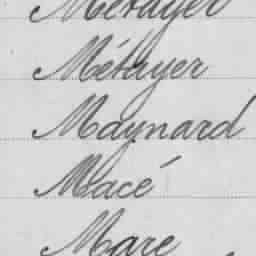 Métayer
Métayer
Maynard
Macé
Mare